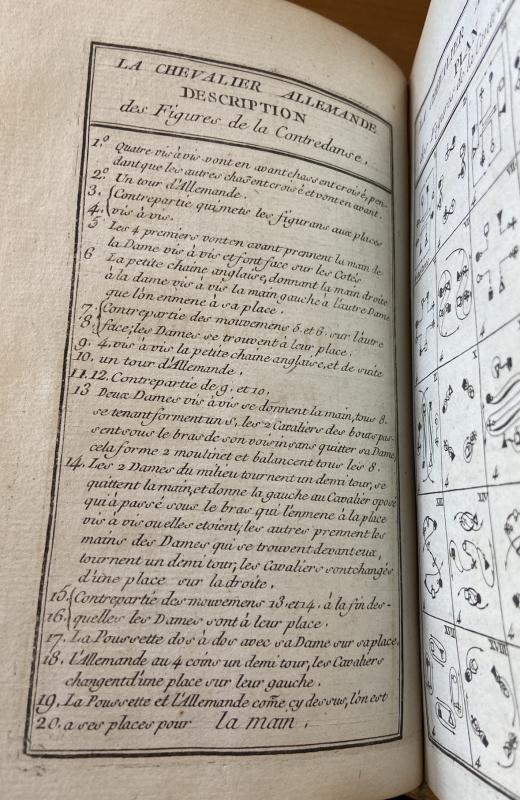 LA CHEVALIER ALLEMANDE
DESCRIPTION
des Figures de la Contredanse.
1.º Quatre vis à vis vont en avant chassent croisé, pen-
dant que les autres chassent croisé et vont en avant.
2.º Un tour d'Allemande.
3. Contrepartie qui mets les figurans aux places
4. vis à vis.
5 Les 4 premiers vont en avant prennent la main de
la Dame vis à vis et font face sur les Cotés
6 La petite chaine anglaise, donnant la main droite
à la dame vis à vis la main gauche à l'autre Dame
que l'on enmene à sa place.
7. Contrepartie des mouvemens 5. et 6. sur l'autre
8. face; les Dames se trouvent à leur place.
9. 4. vis à vis la petite chaine anglaise, et de suite
10. un tour d'Allemande.
11. 12. Contrepartie de 9. et 10.
13 Deux Dames vis à vis se donnent la main, tous 8.
se tenant forment un s, les 2 Cavaliers des bouts pas-
sent sous le bras de son voisin sans quitter sa Dame,
cela forme 2 moulinet et balancent tous les 8.
14. Les 2 Dames du milieu tournent un demi tour, se
quittent la main, et donne la gauche au Cavalier oposé
qui à passé sous le bras qui l'enmene à la place
vis à vis ou elles etoient; les autres prennent les
mains des Dames qui se trouvent devant eux,
tournent un demi tour, les Cavaliers sont changés
d'une place sur la droite.
15. Contrepartie des mouvemens 13. et 14. à la fin des-
16. quelles les Dames sont à leur place.
17. La Poussette dos à dos avec sa Dame sur sa place.
18. L'Allemande au 4 coins un demi tour, les Cavaliers
changent d'une place sur leur gauche.
19. La Poussette et l'Allemande com̄e cy dessus, l'on est
20. a ses places pour la main.
CHEVALIER
PLAN